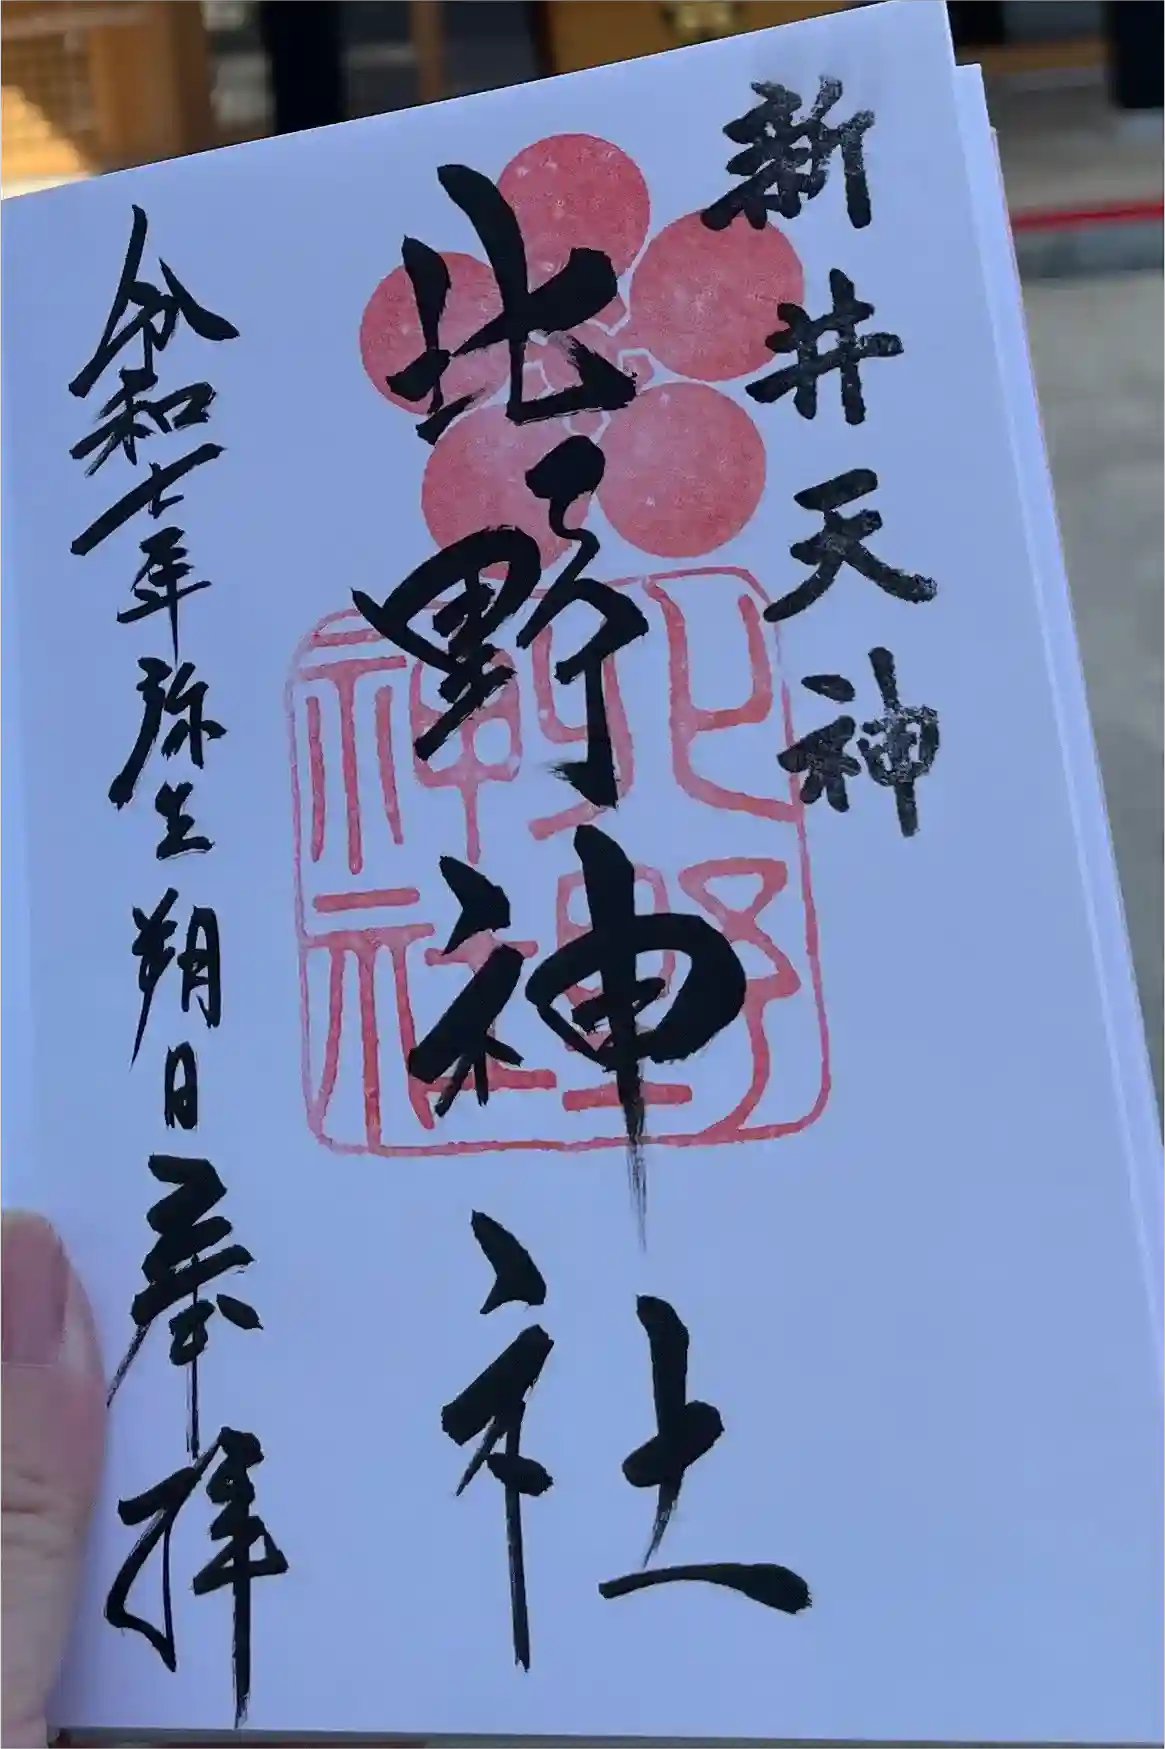 新井天神
北野神社
令和七年弥生朔日奉拝
北野神社